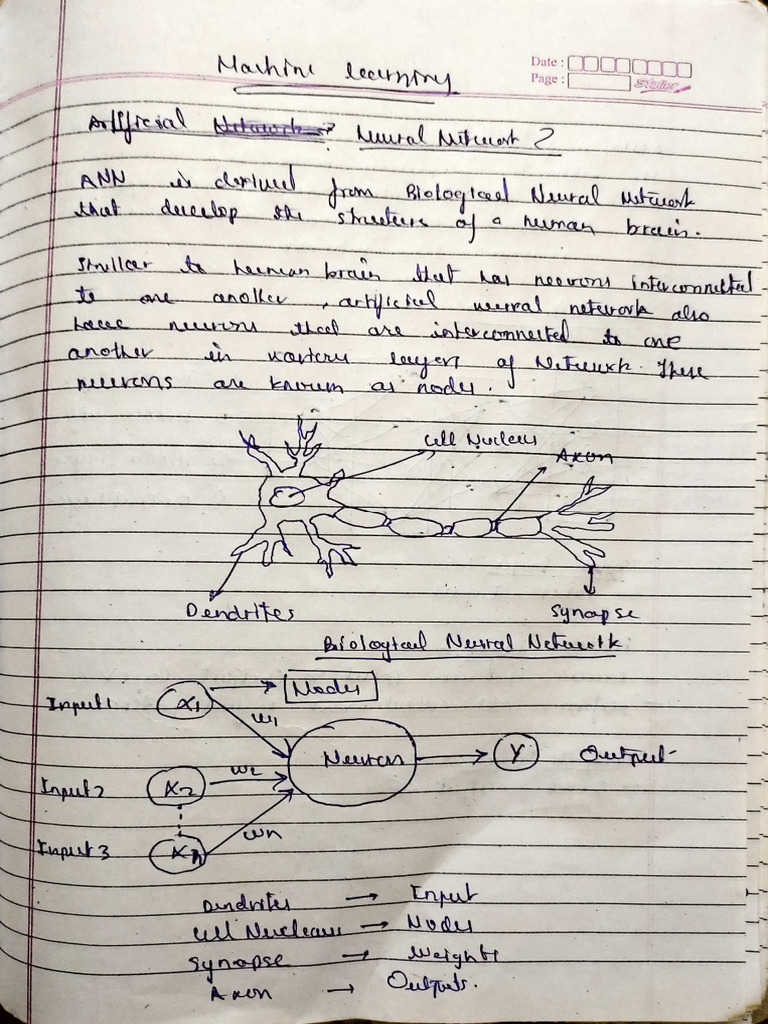 Machine learning
Date :
Page :
Studier
Artificial Network? Neural Network ?
ANN is derived from Biological Neural Network
that develop the structure of a human brain.
Similar to human brain that has neurons interconnected
to one another, artificial neural network also
have neurons that are interconnected to one
another in various layers of Network. These
neurons are known as nodes.
Cell Nucleus
Axon
Dendrites
Synapse
Biological Neural Network
Input 1 x1 Nodes
w1
Neuron Y Output
Input 2 x2 w2
Input 3 xn wn
Dendrites → Input
Cell Nucleus → Nodes
Synapse → Weights
Axon → Outputs.